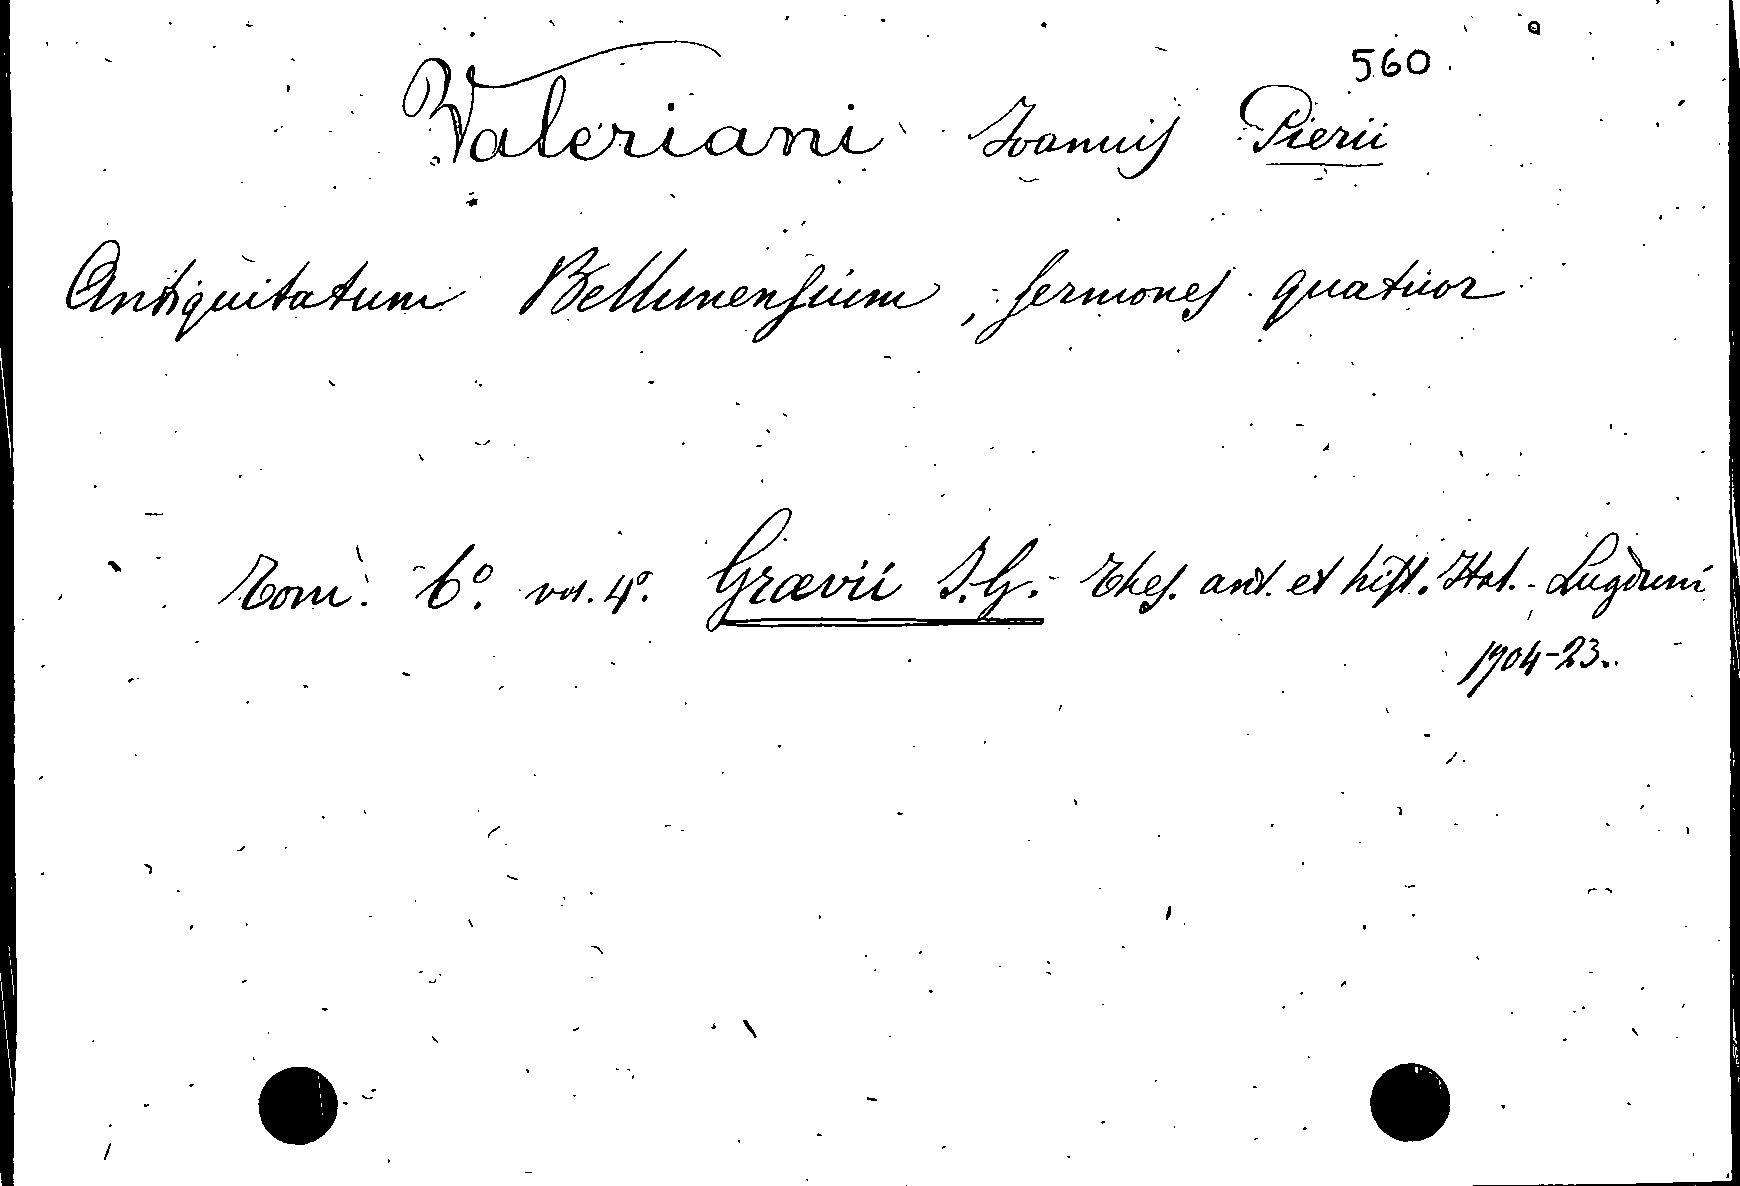 560
Valeriani Ioannis Pierii
Antiquitatum Bellunensium, sermones quatuor
Tom. 6º. vol. 4º. Grævii I. G. - Thes. ant. et hist. Ital. - Lugduni
1704-23.